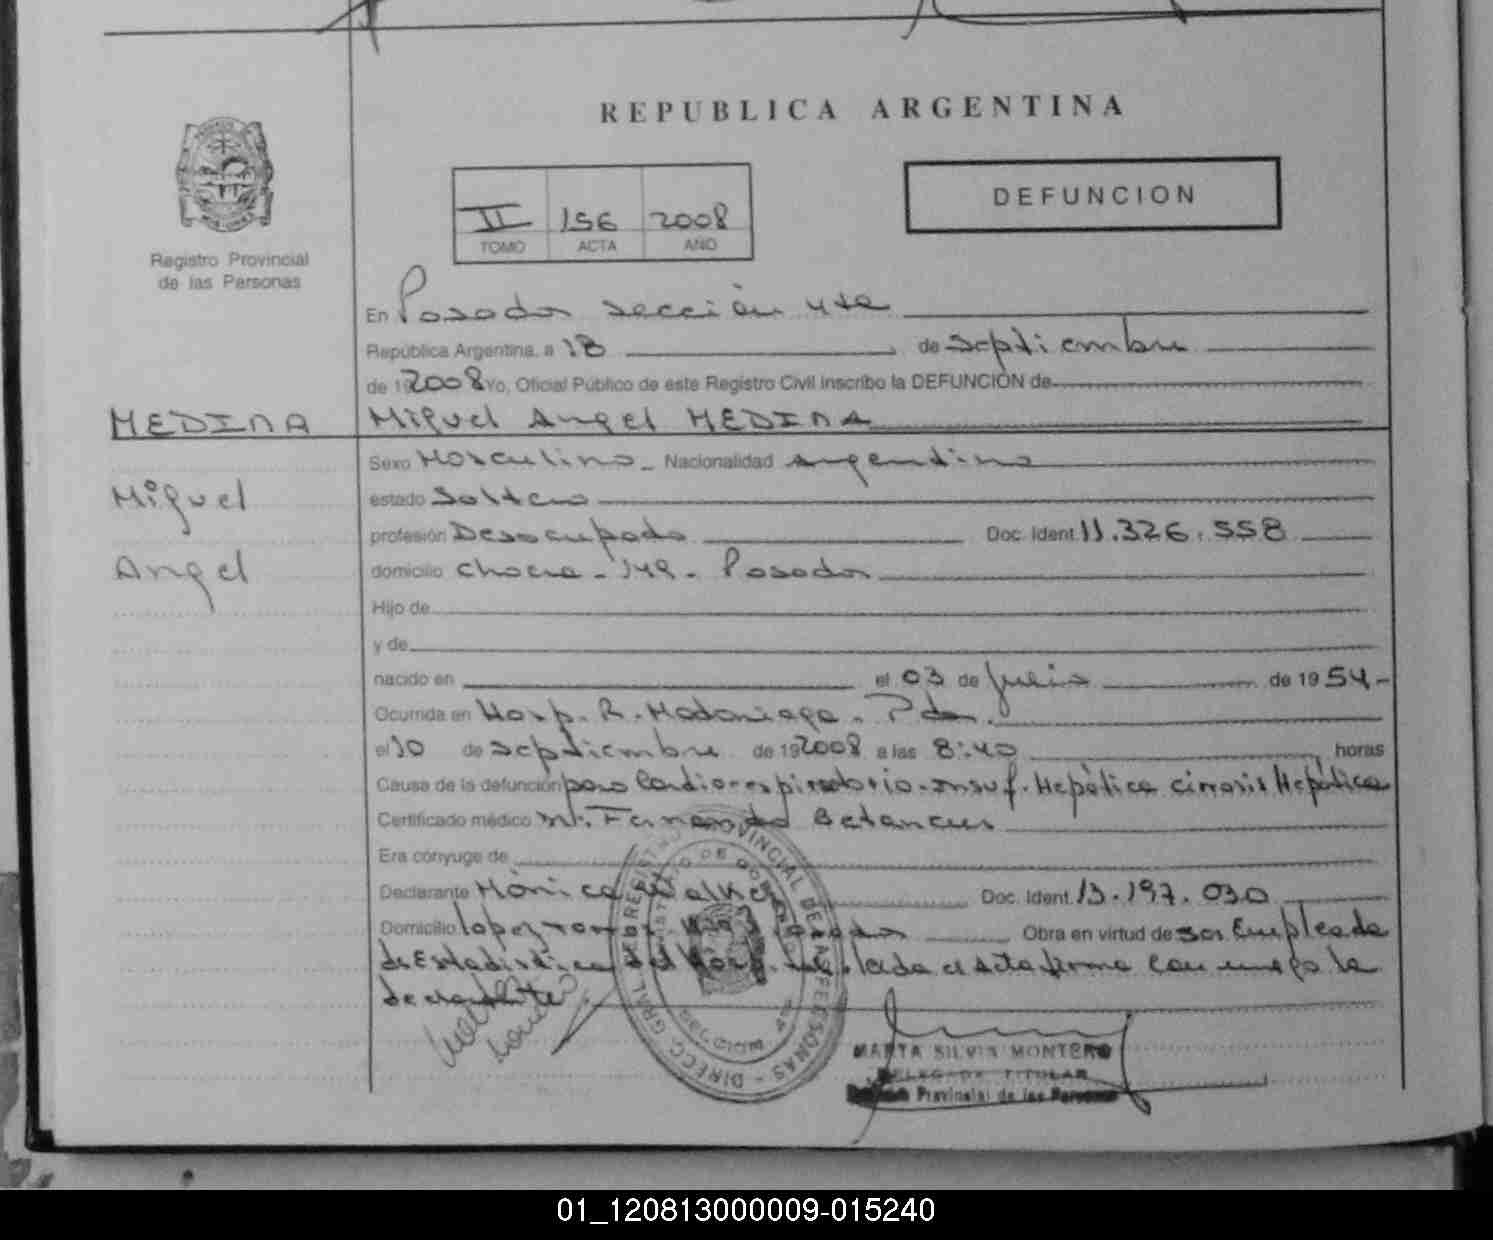 REPUBLICA ARGENTINA
DEFUNCION
II 156 2008
TOMO ACTA AÑO
Registro Provincial
de las Personas
En Posadas sección 4ta
República Argentina, a 18 de septiembre
de 19 2008 Yo, Oficial Público de este Registro Civil inscribo la DEFUNCIÓN de
MEDINA Miguel Angel MEDINA
Sexo Masculino Nacionalidad argentina
Miguel
estado Soltero
profesión Desocupado Doc. Ident. 11.326.558
Angel
domicilio chacra - 149 - Posadas
Hijo de
y de
nacido en el 03 de julio de 1954-
Ocurrida en Hosp. R. Madariaga. Pdas.
el 10 de septiembre de 19 2008 a las 8:40 horas
Causa de la defunción paro Cardiorespiratorio-insuf. Hepática cirrosis Hepática
Certificado médico Fernando Betancur
Era cónyuge de
Declarante Mónica Doc. Ident. 13.197.030
Domicilio lopez Obra en virtud de ser Empleada
de Estadística del Hosp. leida el acta firma con migo la
declarante
DIREC. GRAL. DE REGISTRO PROVINCIAL DE LAS PERSONAS
MARTA SILVIA MONTERO
DELEGADA TITULAR
Provincial de las Personas
01_120813000009-015240